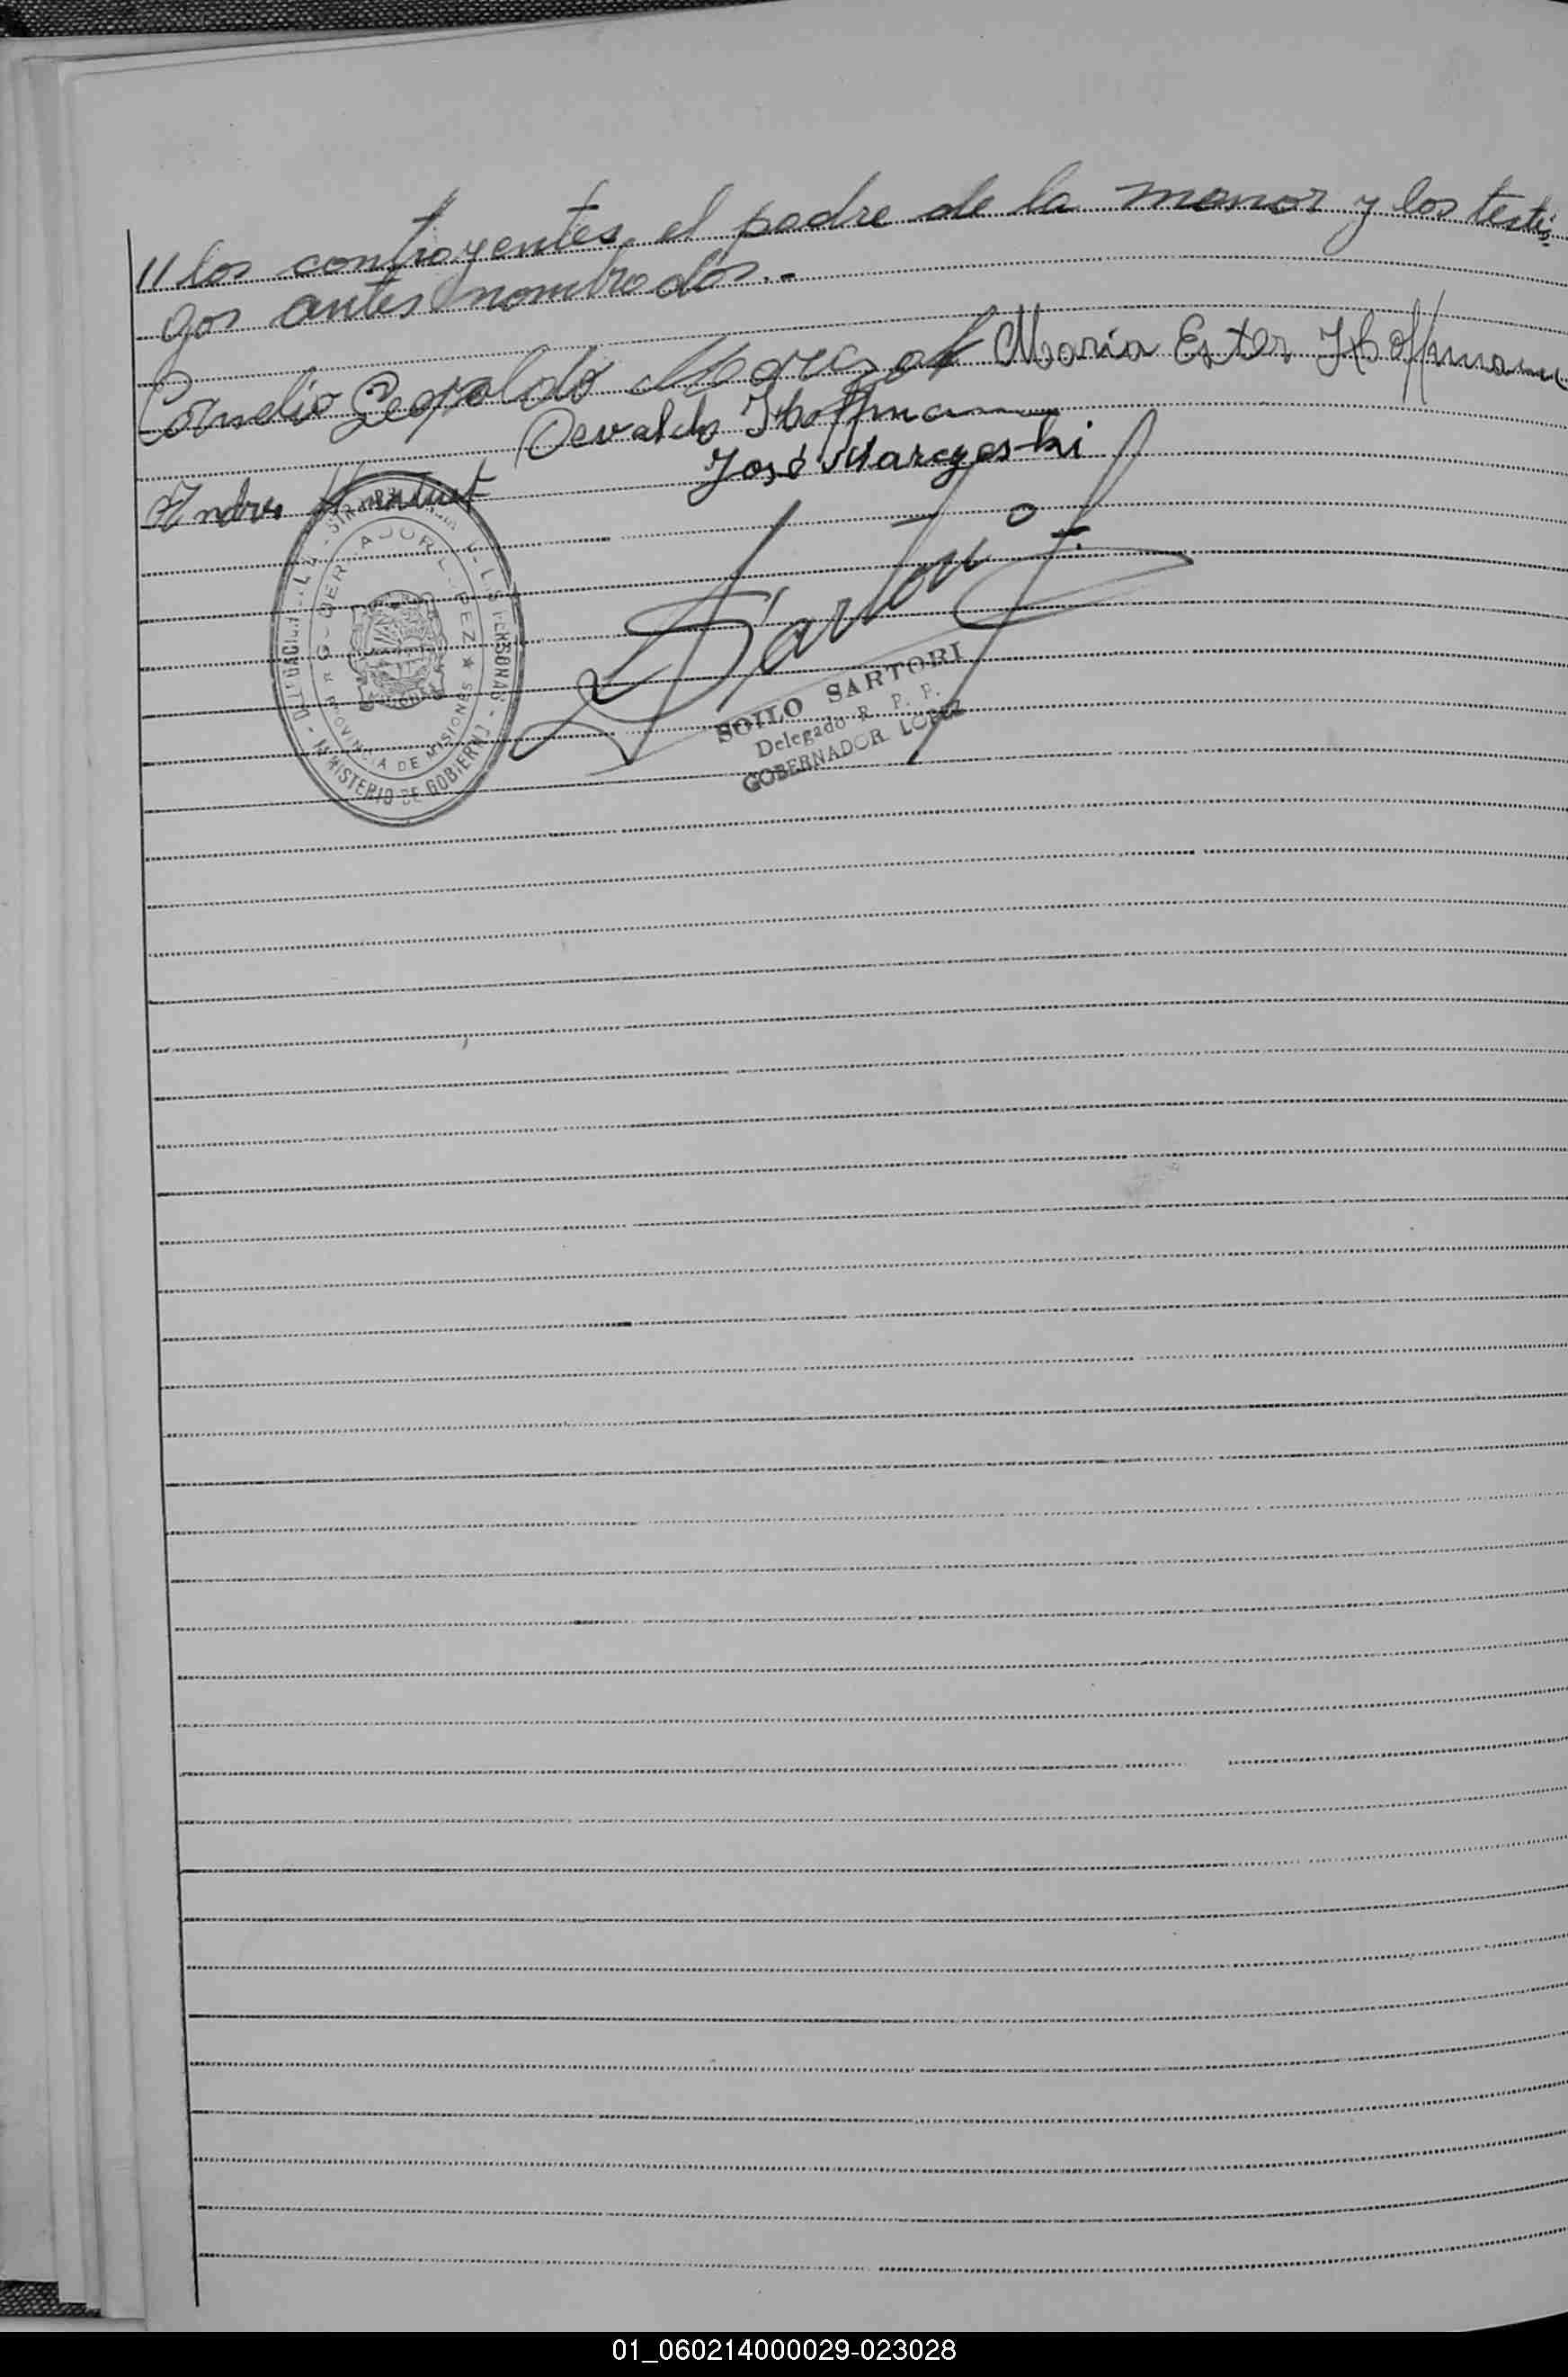 // los contrayentes, el padre de la menor y los testi-
gos antes nombrados.-
Cornelio Leopoldo María Ester Hoffmann
Osvaldo Hoffmann
José Marczeski
Andres
Sartori
SOILO SARTORI
Delegado R. P. P.
GOBERNADOR LOPEZ
GOBERNADOR LOPEZ ★ PROVINCIA DE MISIONES
DE LAS PERSONAS - MINISTERIO DE GOBIERNO -
01_060214000029-023028